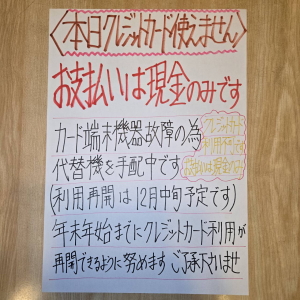 〈本日クレジットカード使えません〉
お支払いは現金のみです
カード端末機器故障の為
代替機を手配中です
クレジットカード
利用不可
お支払いは現金のみ
(利用再開は12月中旬予定です)
年末年始までにクレジットカード利用が
再開できるように努めます ご了承下さいませ